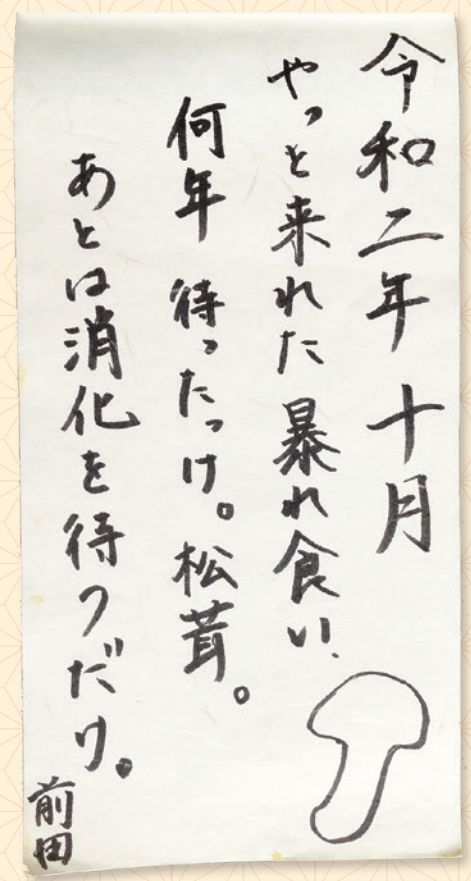 令和二年 十月
やっと来れた 暴れ食い、
何年 待ったっけ。松茸。
あとは消化を待つだけ。
前田